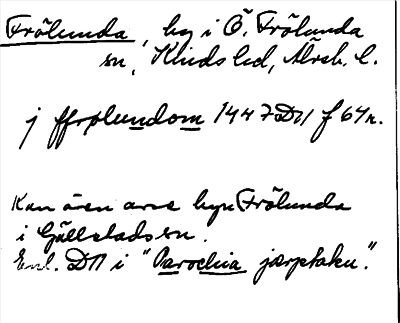 Frölunda, by i Ö. Frölunda
sn, Kinds hd, Älvsb. l.
j ffrølundom 1447 DN f 64r.
Kan även avse byn Frölunda
i Gällstads sn.
Enl. DN i "Parochia jærptaku".